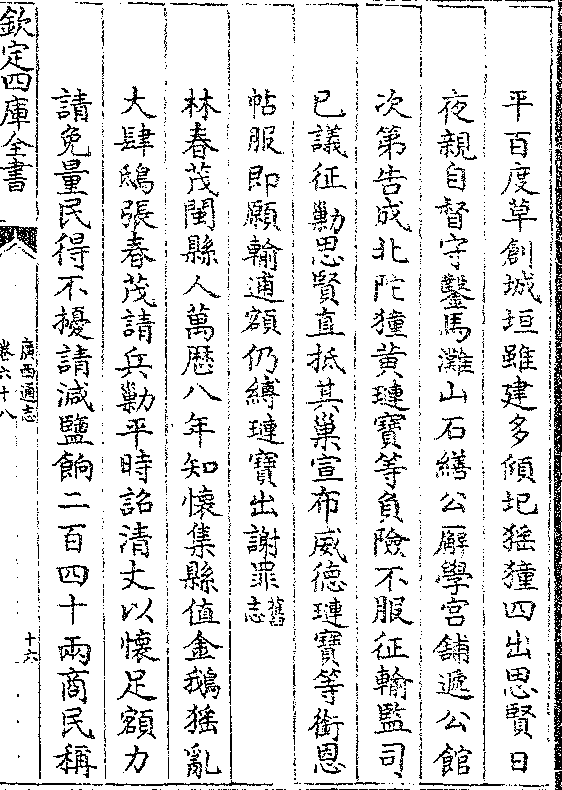 平百度草創城垣雖建多傾圮猺獞四出思賢日
夜親自督守鑿馬灘山石繕公廨學宮舖遞公館
次第告成北陀獞黄璉寶等負險不服征輸監司
已議征勦思賢直抵其巢宣布威德璉寶等銜恩
帖服即願輸逋額仍縛璉寶出謝罪舊志
林春茂閩縣人萬厯八年知懷集縣值金鵝猺亂
大肆鴟張春茂請兵勦平時詔清丈以懷足額力
請免量民得不擾請減鹽餉二百四十兩商民稱
欽定四庫全書
廣西通志
卷六十八
十六